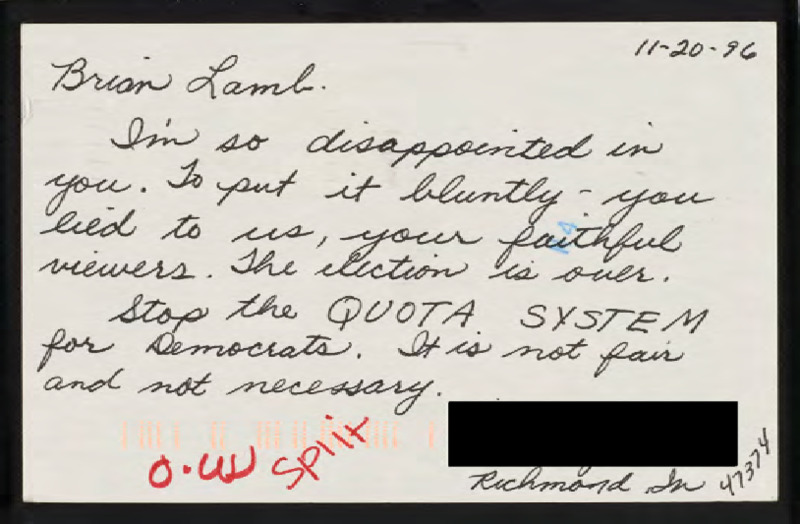 11-20-96
Brian Lamb.
I'm so disappointed in
you. To put it bluntly - you
lied to us, your faithful
viewers. The election is over.
Stop the QUOTA SYSTEM
for Democrats. It is not fair
and not necessary.
split
Richmond In 47374